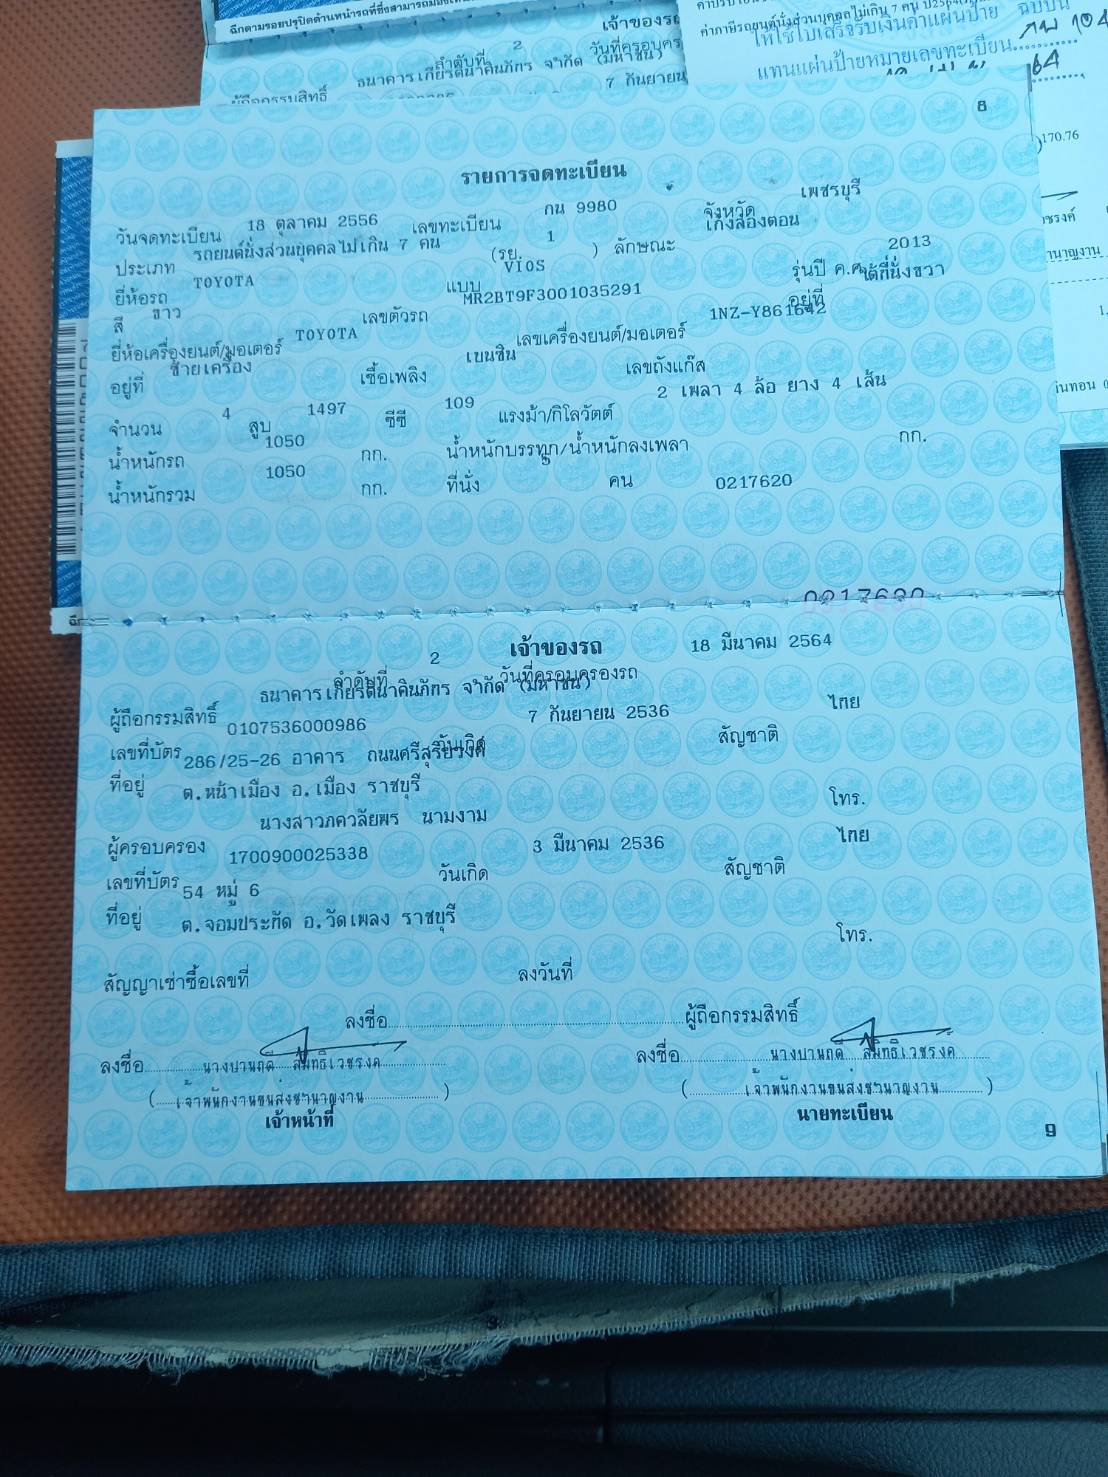 ฉีกตามรอยปรุปิดด้านหน้ารถที่ซึ่งสามารถมอง
เจ้าของรถ
ลำดับที่ 2 วันที่ครอบคร
ธนาคารเกียรตินาคินภัทร จำกัด (มหาชน)
ผู้ถือกรรมสิทธิ์
7 กันยายน
ค่าภาษีรถยนต์นั่งส่วนบุคคลไม่เกิน 7 คน ปี2564
ให้ใช้ใบเสร็จรับเงินค่าแผ่นป้าย
แทนแผ่นป้ายหมายเลขทะเบียน
64
170.76
8
รายการจดทะเบียน
วันจดทะเบียน 18 ตุลาคม 2556 เลขทะเบียน กน 9980 จังหวัด เพชรบุรี
ประเภท รถยนต์นั่งส่วนบุคคลไม่เกิน 7 คน (รย. 1 ) ลักษณะ เก๋งสองตอน
ยี่ห้อรถ TOYOTA แบบ VIOS รุ่นปี ค.ศ. 2013
สี ขาว เลขตัวรถ MR2BT9F3001035291 อยู่ที่ ใต้ที่นั่งขวา
ยี่ห้อเครื่องยนต์/มอเตอร์ TOYOTA เลขเครื่องยนต์/มอเตอร์ 1NZ-Y861642
อยู่ที่ ซ้ายเครื่อง เชื้อเพลิง เบนซิน เลขถังแก๊ส
จำนวน 4 สูบ 1497 ซีซี 109 แรงม้า/กิโลวัตต์ 2 เพลา 4 ล้อ ยาง 4 เส้น
น้ำหนักรถ 1050 กก. น้ำหนักบรรทุก/น้ำหนักลงเพลา กก.
น้ำหนักรวม 1050 กก. ที่นั่ง 5 คน 0217620
0217620
เจ้าของรถ
ลำดับที่ 2 วันที่ครอบครองรถ 18 มีนาคม 2564
ผู้ถือกรรมสิทธิ์ ธนาคารเกียรตินาคินภัทร จำกัด (มหาชน)
เลขที่บัตร 0107536000986 วันเกิด 7 กันยายน 2536 สัญชาติ ไทย
ที่อยู่ 286/25-26 อาคาร ถนนศรีสุริยวงศ์
ต.หน้าเมือง อ.เมือง ราชบุรี โทร.
ผู้ครอบครอง นางสาวภควลัยพร นามงาม
เลขที่บัตร 1700900025338 วันเกิด 3 มีนาคม 2536 สัญชาติ ไทย
ที่อยู่ 54 หมู่ 6
ต.จอมประทัด อ.วัดเพลง ราชบุรี โทร.
สัญญาเช่าซื้อเลขที่ ลงวันที่
ลงชื่อ ผู้ถือกรรมสิทธิ์
ลงชื่อ นางปานฤดี สัมิทธิเวชรงค์ ลงชื่อ นางปานฤดี สัมิทธิเวชรงค์
( เจ้าพนักงานขนส่งชำนาญงาน ) ( เจ้าพนักงานขนส่งชำนาญงาน )
เจ้าหน้าที่ นายทะเบียน
9